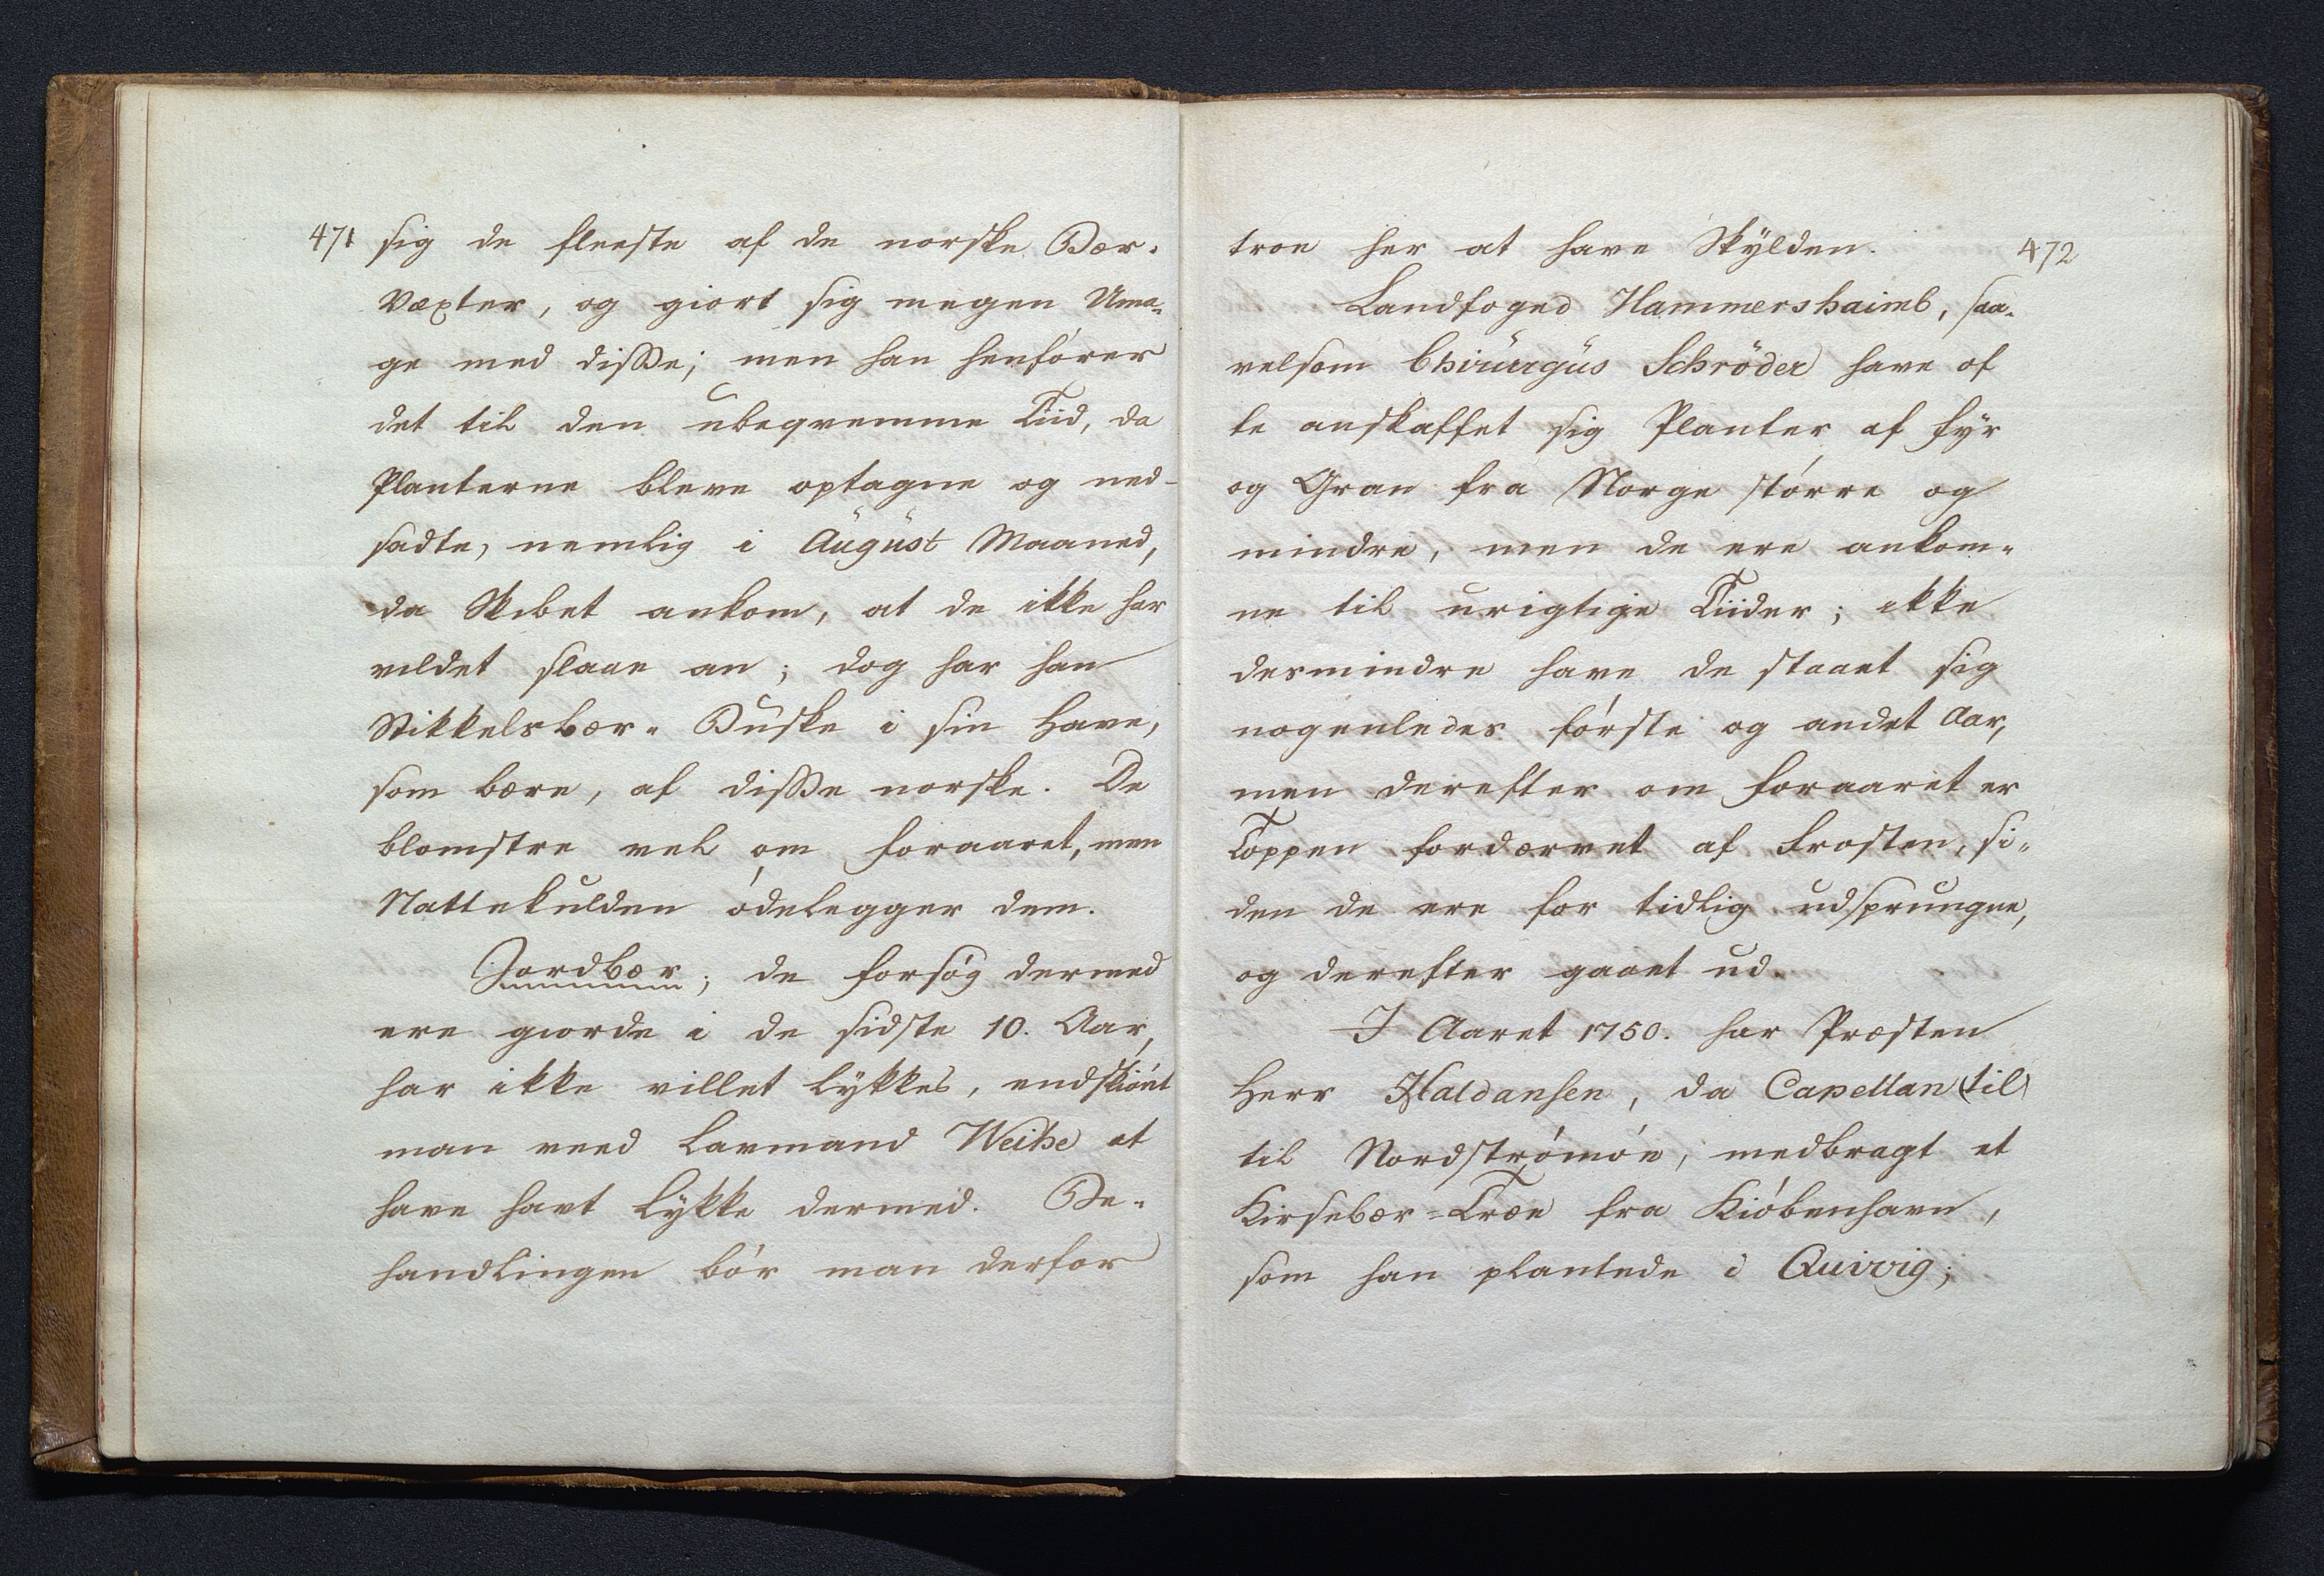 471 sig de fleeste af de norske Bær-
Væxter, og giort sig megen Uma-
ge med disse; men han henfører
det til den ubeqvemme Tiid, da
Planterne bleve optagne og ned-
sadte, nemlig i August Maaned,
da Skibet ankom, at de ikke har
vildet slaae an; dog har han
Stikkelsbær-Buske i sin Have,
som bære, af disse norske. De
blomstre vel om Foraaret, men
Nattekulden ødelegger dem.
Jordbær; de Forsøg dermed
ere giorde i de sidste 10. Aar,
har ikke villet lykkes, endskiønt
man veed Lavmand Weihe at
have havt Lykke dermed. Be-
handlingen bør man derfor
troe her at have Skylden. 472
Landfoged Hammershaimb, saa-
velsom Chirurgus Schrøder have of
te anskaffet sig Planter af Fyr
og Gran fra Norge større og
mindre, men de ere ankom-
ne til urigtige Tiider; ikke
desmindre have de staaet sig
nogenledes første og andet Aar,
men derefter om Foraaret er
Toppen fordærvet af Frosten, si-
den de ere for tidlig udsprungne,
og derefter gaaet ud.
I Aaret 1750. har Præsten
Herr Haldansen, da Capellan (til)
til Nordstrømøe, medbragt et
Kirsebær-Træe fra Kiøbenhavn,
som han plantede i Quivig;